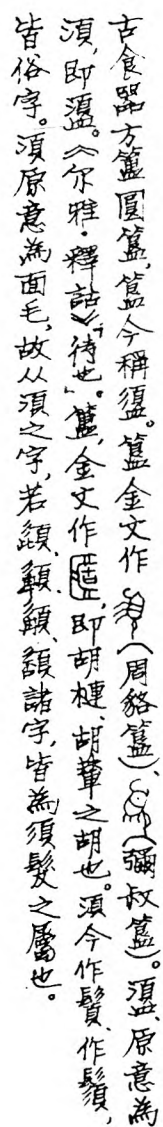 古食器方簠圓簋,簋今稱盨。簋金文作(周貉簠)、(彌叔簠)。盨、原意為
湏,即盨。《尔雅·釋詁》「待也」。簠,金文作,即胡槤、胡輦之胡也。湏今作鬚、作鬚,
皆俗字。湏原意為面毛,故从湏之字,若䫇、顭、頟諸字,皆為須髮之屬也。